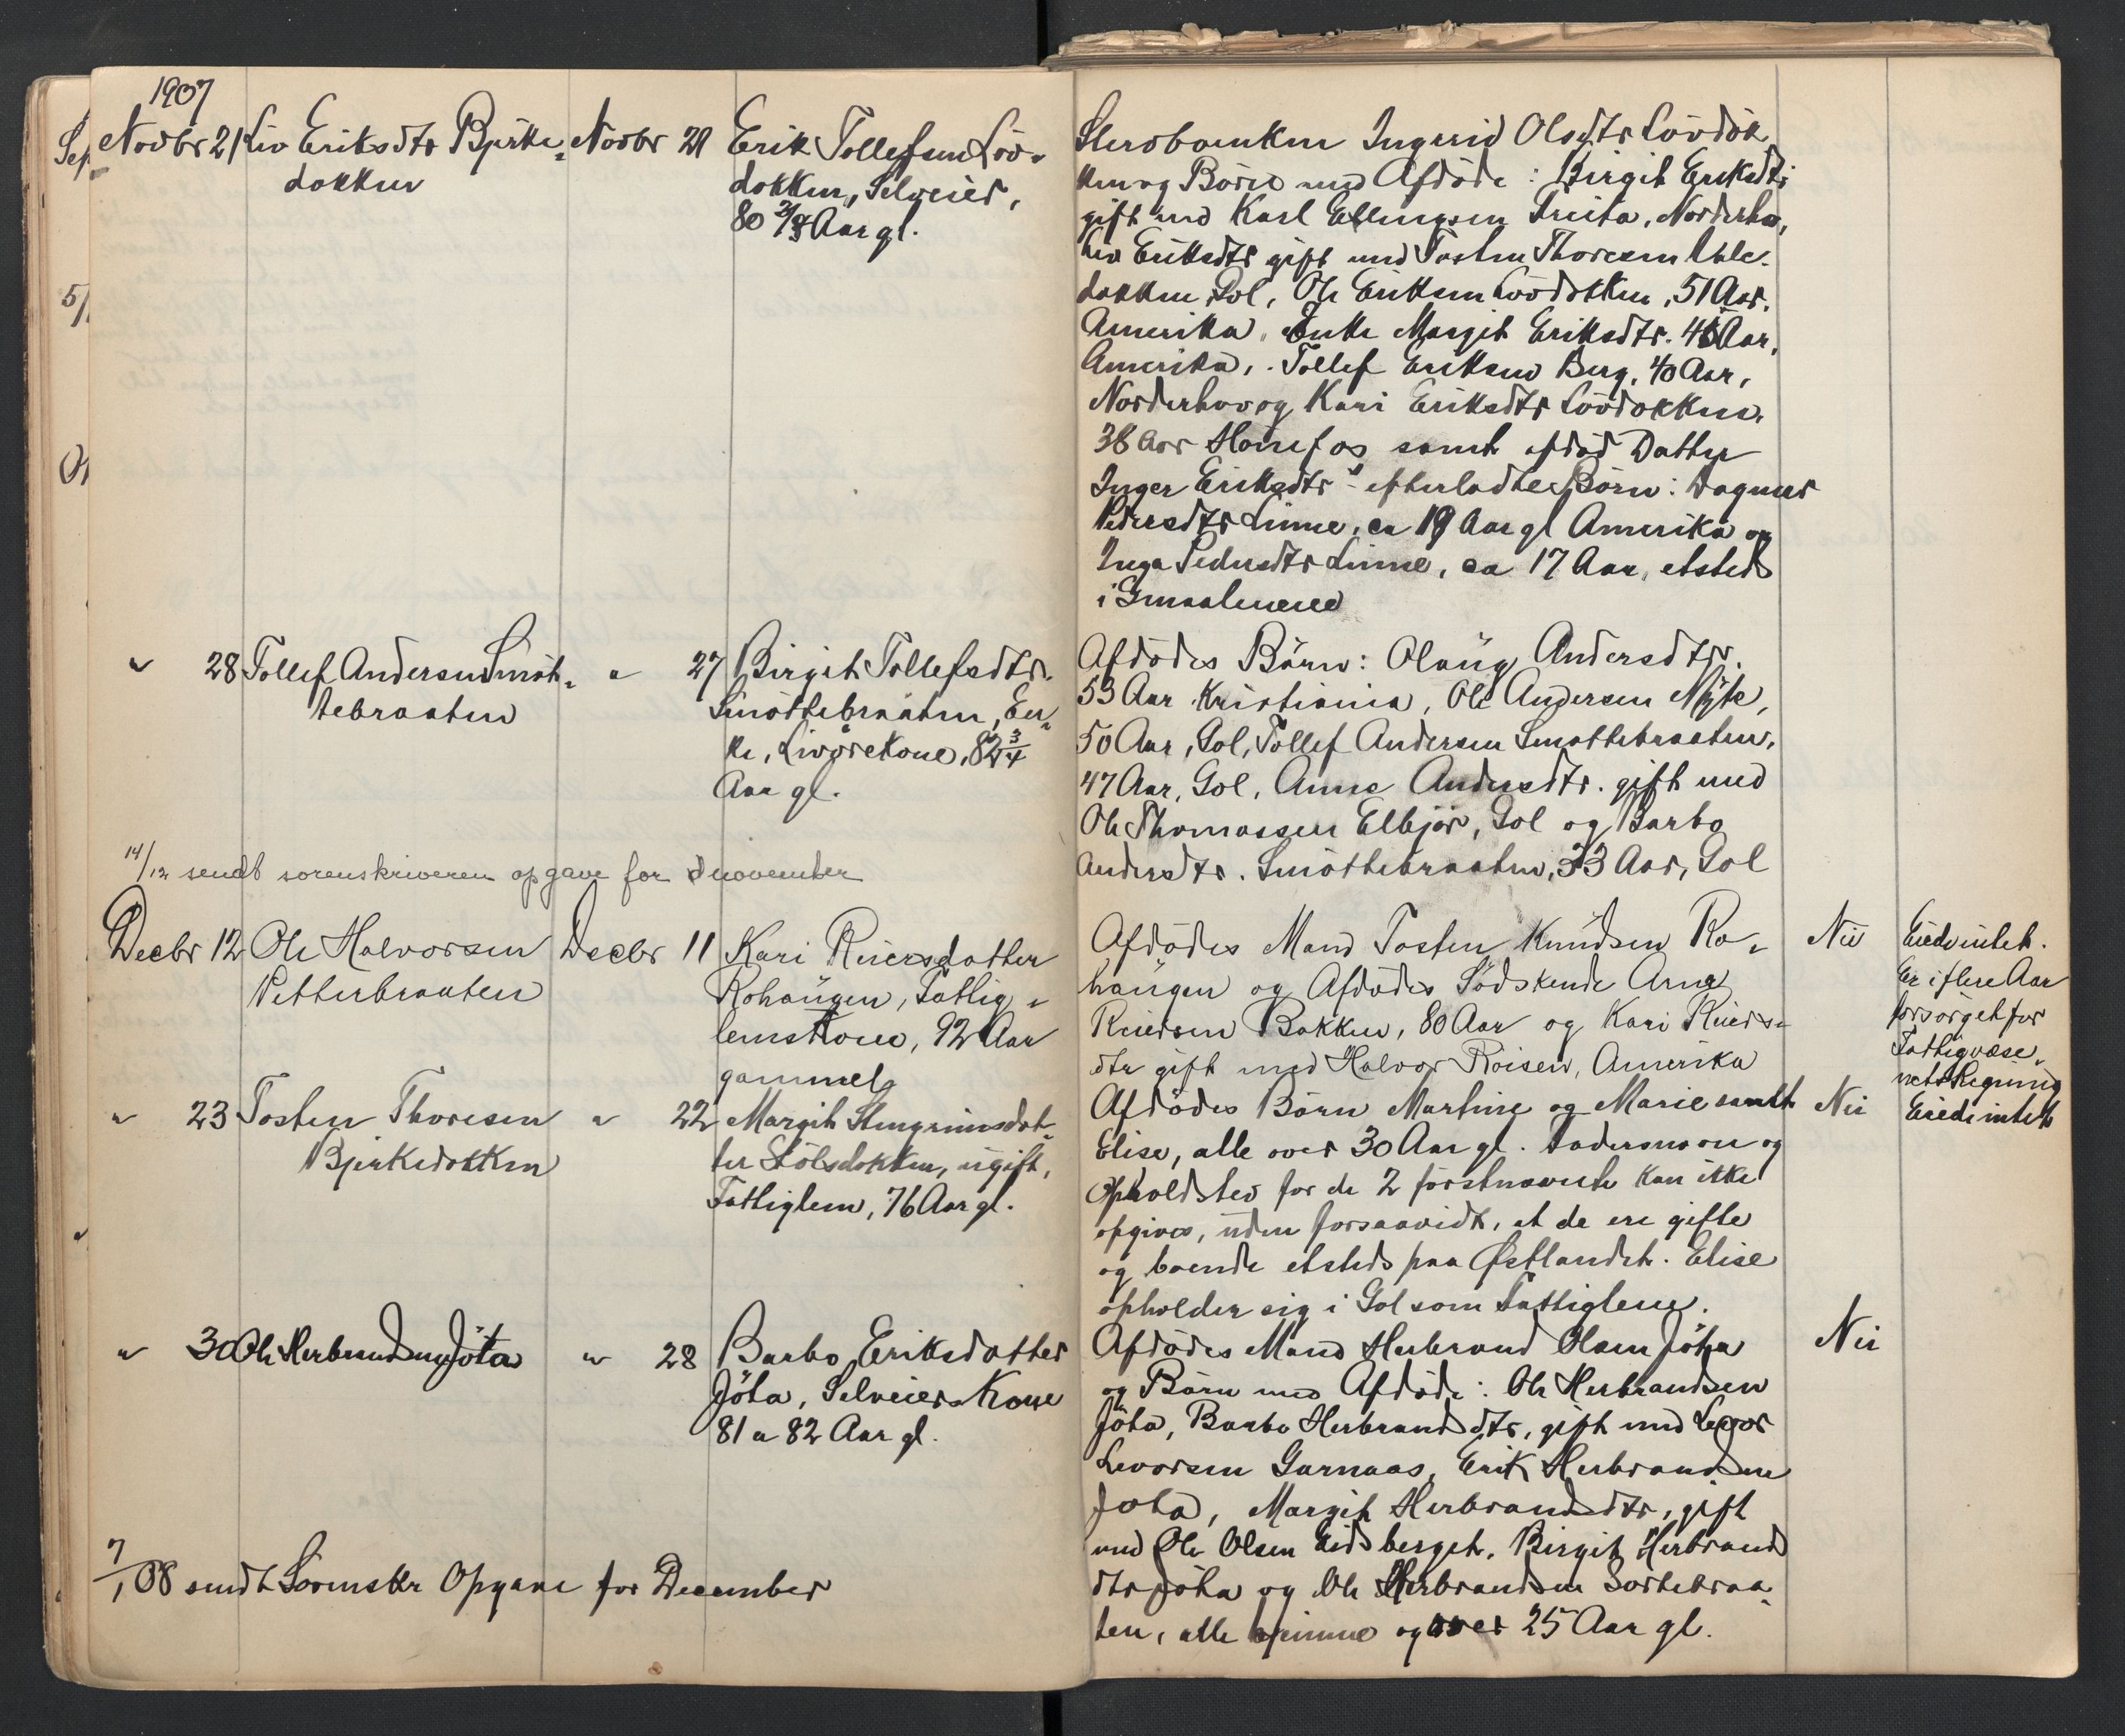 1907
Novbr 21 Liv Eriksdtr Bjerke- Novbr 21 Erik Tollefsen Löv-
dokken
dokken, Selveier,
80 3/4 Aar gl.
Sterboenken Ingerid Olsdtr Lövdok
ken og Börn med Afdöde: Birgit Eriksdtr
gift med Karl Ellingsen Norderho,
Liv Eriksdtr gift med Tosten Thoresen
dokken Gol, Ole Eriksen Lövdokken, 51 Aar,
Amerika, Enke Margit Eriksdtr. 46 Aar,
Amerika, Tollef Eriksen Berg, 40 Aar,
Norderhov og Kari Eriksdtr Lövdokken,
38 Aar Hönefos samt afdöd Datter
Inger Eriksdtr's efterladte Börn: Dagmar
Pedersdtr Linne, ca 19 Aar gl Amerika og
Inga Pedersdtr Linne, ca 17 Aar, etsteds
i Smaalenene
" 28 Tollef Andersen Smöt- " 27 Birgit Tollefsdtr.
tebraaten
Smöttebraaten, En-
ke, Livörekone, 82 3/4
Aar gl.
Afdödes Börn: Olaug Andersdtr.
53 Aar Kristiania, Ole Andersen
50 Aar, Gol, Tollef Andersen Smöttebraaten,
47 Aar, Gol, Anne Andersdtr. gift med
Ole Thomassen Elbjör, Gol og Barbo
Andersdtr. Smöttebraaten, 33 Aar, Gol
14/12 sendt sorenskriveren opgave for november
Decbr 12 Ole Halvorsen Decbr 11 Kari Reiersdatter
Petterbraaten
Rohaugen, Fattig-
lemskone, 92 Aar
gammel
Afdödes Mand Tosten Knudsen Ro-
haugen og Afdödes Södskende Arne
Reiersen Bakken, 80 Aar og Kari Reiers-
dtr gift med Halvor Roisen, Amerika
Nei
Eiede intet.
Er i flere Aar
forsörget for
Fattigvæse-
nets Regning
" 23 Tosten Thoresen " 22 Margit Stengrimsdat-
Bjerkedokken
ter Stölsdokken, ugift,
Fattiglem, 76 Aar gl.
Afdödes Börn Martine og Marie samt
Elise, alle over 30 Aar gl. Fadersnavn og
Opholdsted for de 2 förstnævnte kan ikke
opgives, uden forsaavidt, at de ere gifte
og boende etsteds paa Östlandet. Elise
opholder sig i Gol som Fattiglem.
Nei
Eiede intet
" 30 Ole Herbrandsen Jöta " 28 Barbo Eriksdatter
Jöta, Selveier-Kone
81 a 82 Aar gl.
Afdödes Mand Herbrand Olsen Jöta
og Börn med Afdöde: Ole Herbrandsen
Jöta, Barbo Herbrandsdtr, gift med Levor
Levorsen Garnaas, Erik Herbrandsen
Jöta, Margit Herbrandsdtr, gift
med Ole Olsen Eidsberget, Birgit Herbrands
dtr Jöta og Ole Herbrandsen Sortebraa-
ten, alle og over 25 Aar gl.
Nei
7/1 08 sendt Sorenskr Opgave for December